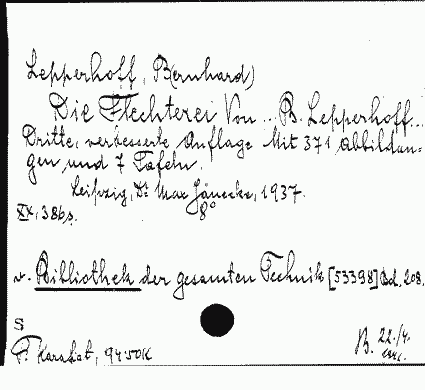 Lepperhoff, B(ernhard)
Die Flechterei Von ... B. Lepperhoff...
Dritte, verbesserte Auflage Mit 371 Abbildun-
gen und 7 Tafeln.
Leipzig, Dr Max Jänecke, 1937.
XX, 386 s. 8°
v. Bibliothek der gesamten Technik [53398] Bd. 208.
S
F. Karafiat, 9450K
B. 22./4.